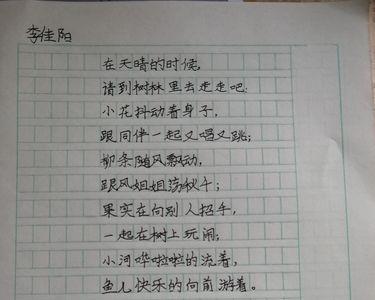 李佳阳
在天晴的时候，
请到树林里去走走吧：
小花抖动着身子，
跟同伴一起又唱又跳；
柳条随风飘动，
跟风姐姐荡秋千；
果实在向别人招手，
一起在树上玩闹；
小河哗啦啦的流着，
鱼儿快乐的向前游着。